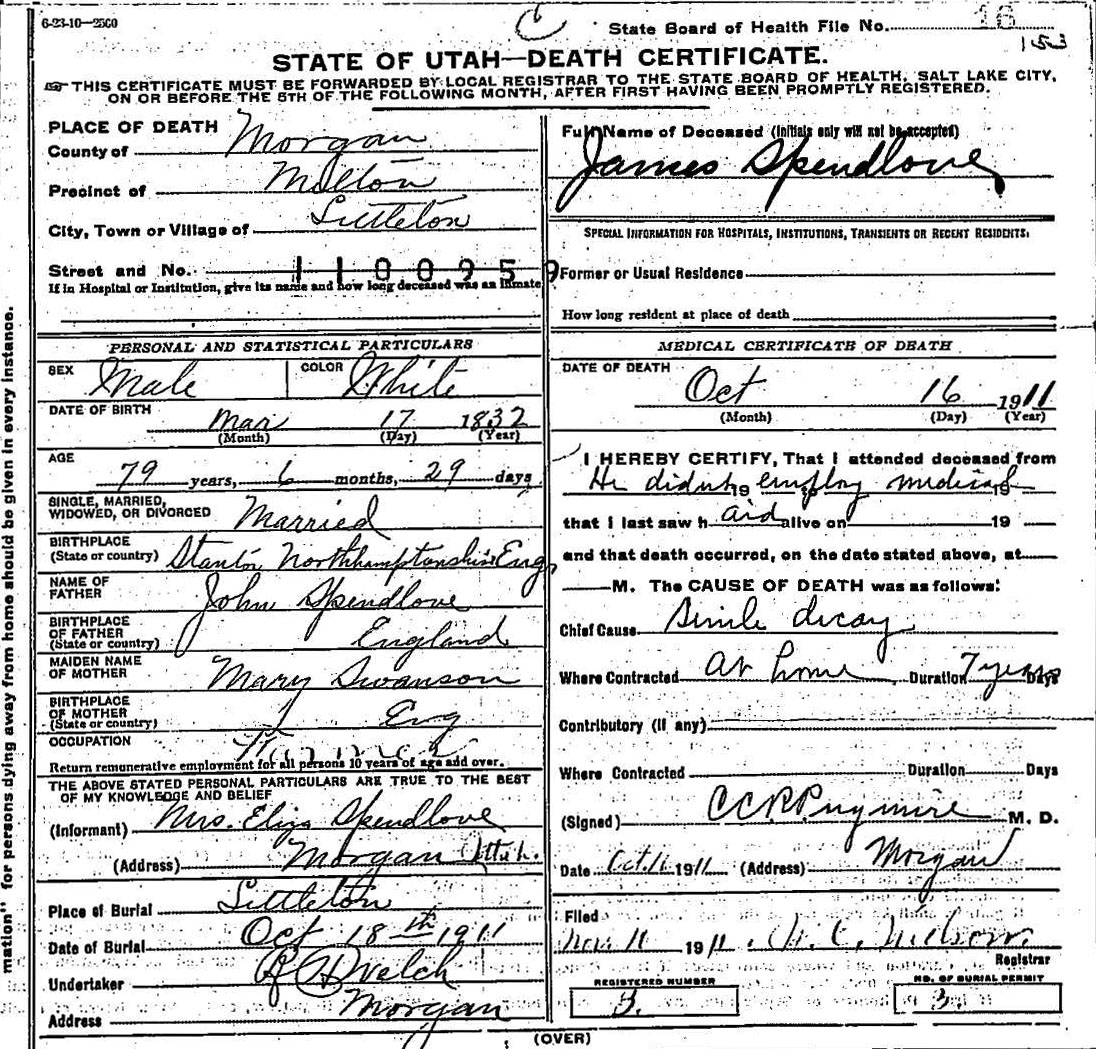 6-23-10-2500
State Board of Health File No. 16
153
STATE OF UTAH—DEATH CERTIFICATE.
THIS CERTIFICATE MUST BE FORWARDED BY LOCAL REGISTRAR TO THE STATE BOARD OF HEALTH, SALT LAKE CITY,
ON OR BEFORE THE 5TH OF THE FOLLOWING MONTH, AFTER FIRST HAVING BEEN PROMPTLY REGISTERED.
PLACE OF DEATH
County of Morgan
Precinct of Milton
City, Town or Village of Littleton
Street and No.
1100959
If in Hospital or Institution, give its name and how long deceased was an inmate
PERSONAL AND STATISTICAL PARTICULARS
SEX Male COLOR White
DATE OF BIRTH Mar 17 1832
(Month) (Day) (Year)
AGE
79 years, 6 months, 29 days
SINGLE, MARRIED,
WIDOWED, OR DIVORCED Married
BIRTHPLACE
(State or country) Stanton Northhamptonshire Eng
NAME OF
FATHER John Spendlove
BIRTHPLACE
OF FATHER
(State or country) England
MAIDEN NAME
OF MOTHER Mary Swanson
BIRTHPLACE
OF MOTHER
(State or country) Eng
OCCUPATION Farmer
Return remunerative employment for all persons 10 years of age and over.
THE ABOVE STATED PERSONAL PARTICULARS ARE TRUE TO THE BEST
OF MY KNOWLEDGE AND BELIEF
(Informant) Mrs. Eliza Spendlove
(Address) Morgan Utah.
Place of Burial Littleton
Date of Burial Oct 18th 1911
Undertaker Welch
Address Morgan
Full Name of Deceased (Initials only will not be accepted)
James Spendlove
SPECIAL INFORMATION FOR HOSPITALS, INSTITUTIONS, TRANSIENTS OR RECENT RESIDENTS.
Former or Usual Residence
How long resident at place of death
MEDICAL CERTIFICATE OF DEATH
DATE OF DEATH
Oct 16 1911
(Month) (Day) (Year)
I HEREBY CERTIFY, That I attended deceased from
He didnt 19 employ medical 19
that I last saw h aid alive on 19
and that death occurred, on the date stated above, at
M. The CAUSE OF DEATH was as follows:
Chief Cause Senile decay
Where Contracted At home Duration 7 years Days
Contributory (if any)
Where Contracted Duration Days
(Signed) M. D.
Date Oct. 1911 (Address) Morgan
Filed
Nov. 11 1911
Registrar
REGISTERED NUMBER
3.
NO. OF BURIAL PERMIT
3
(OVER)
mation" for persons dying away from home should be given in every instance.